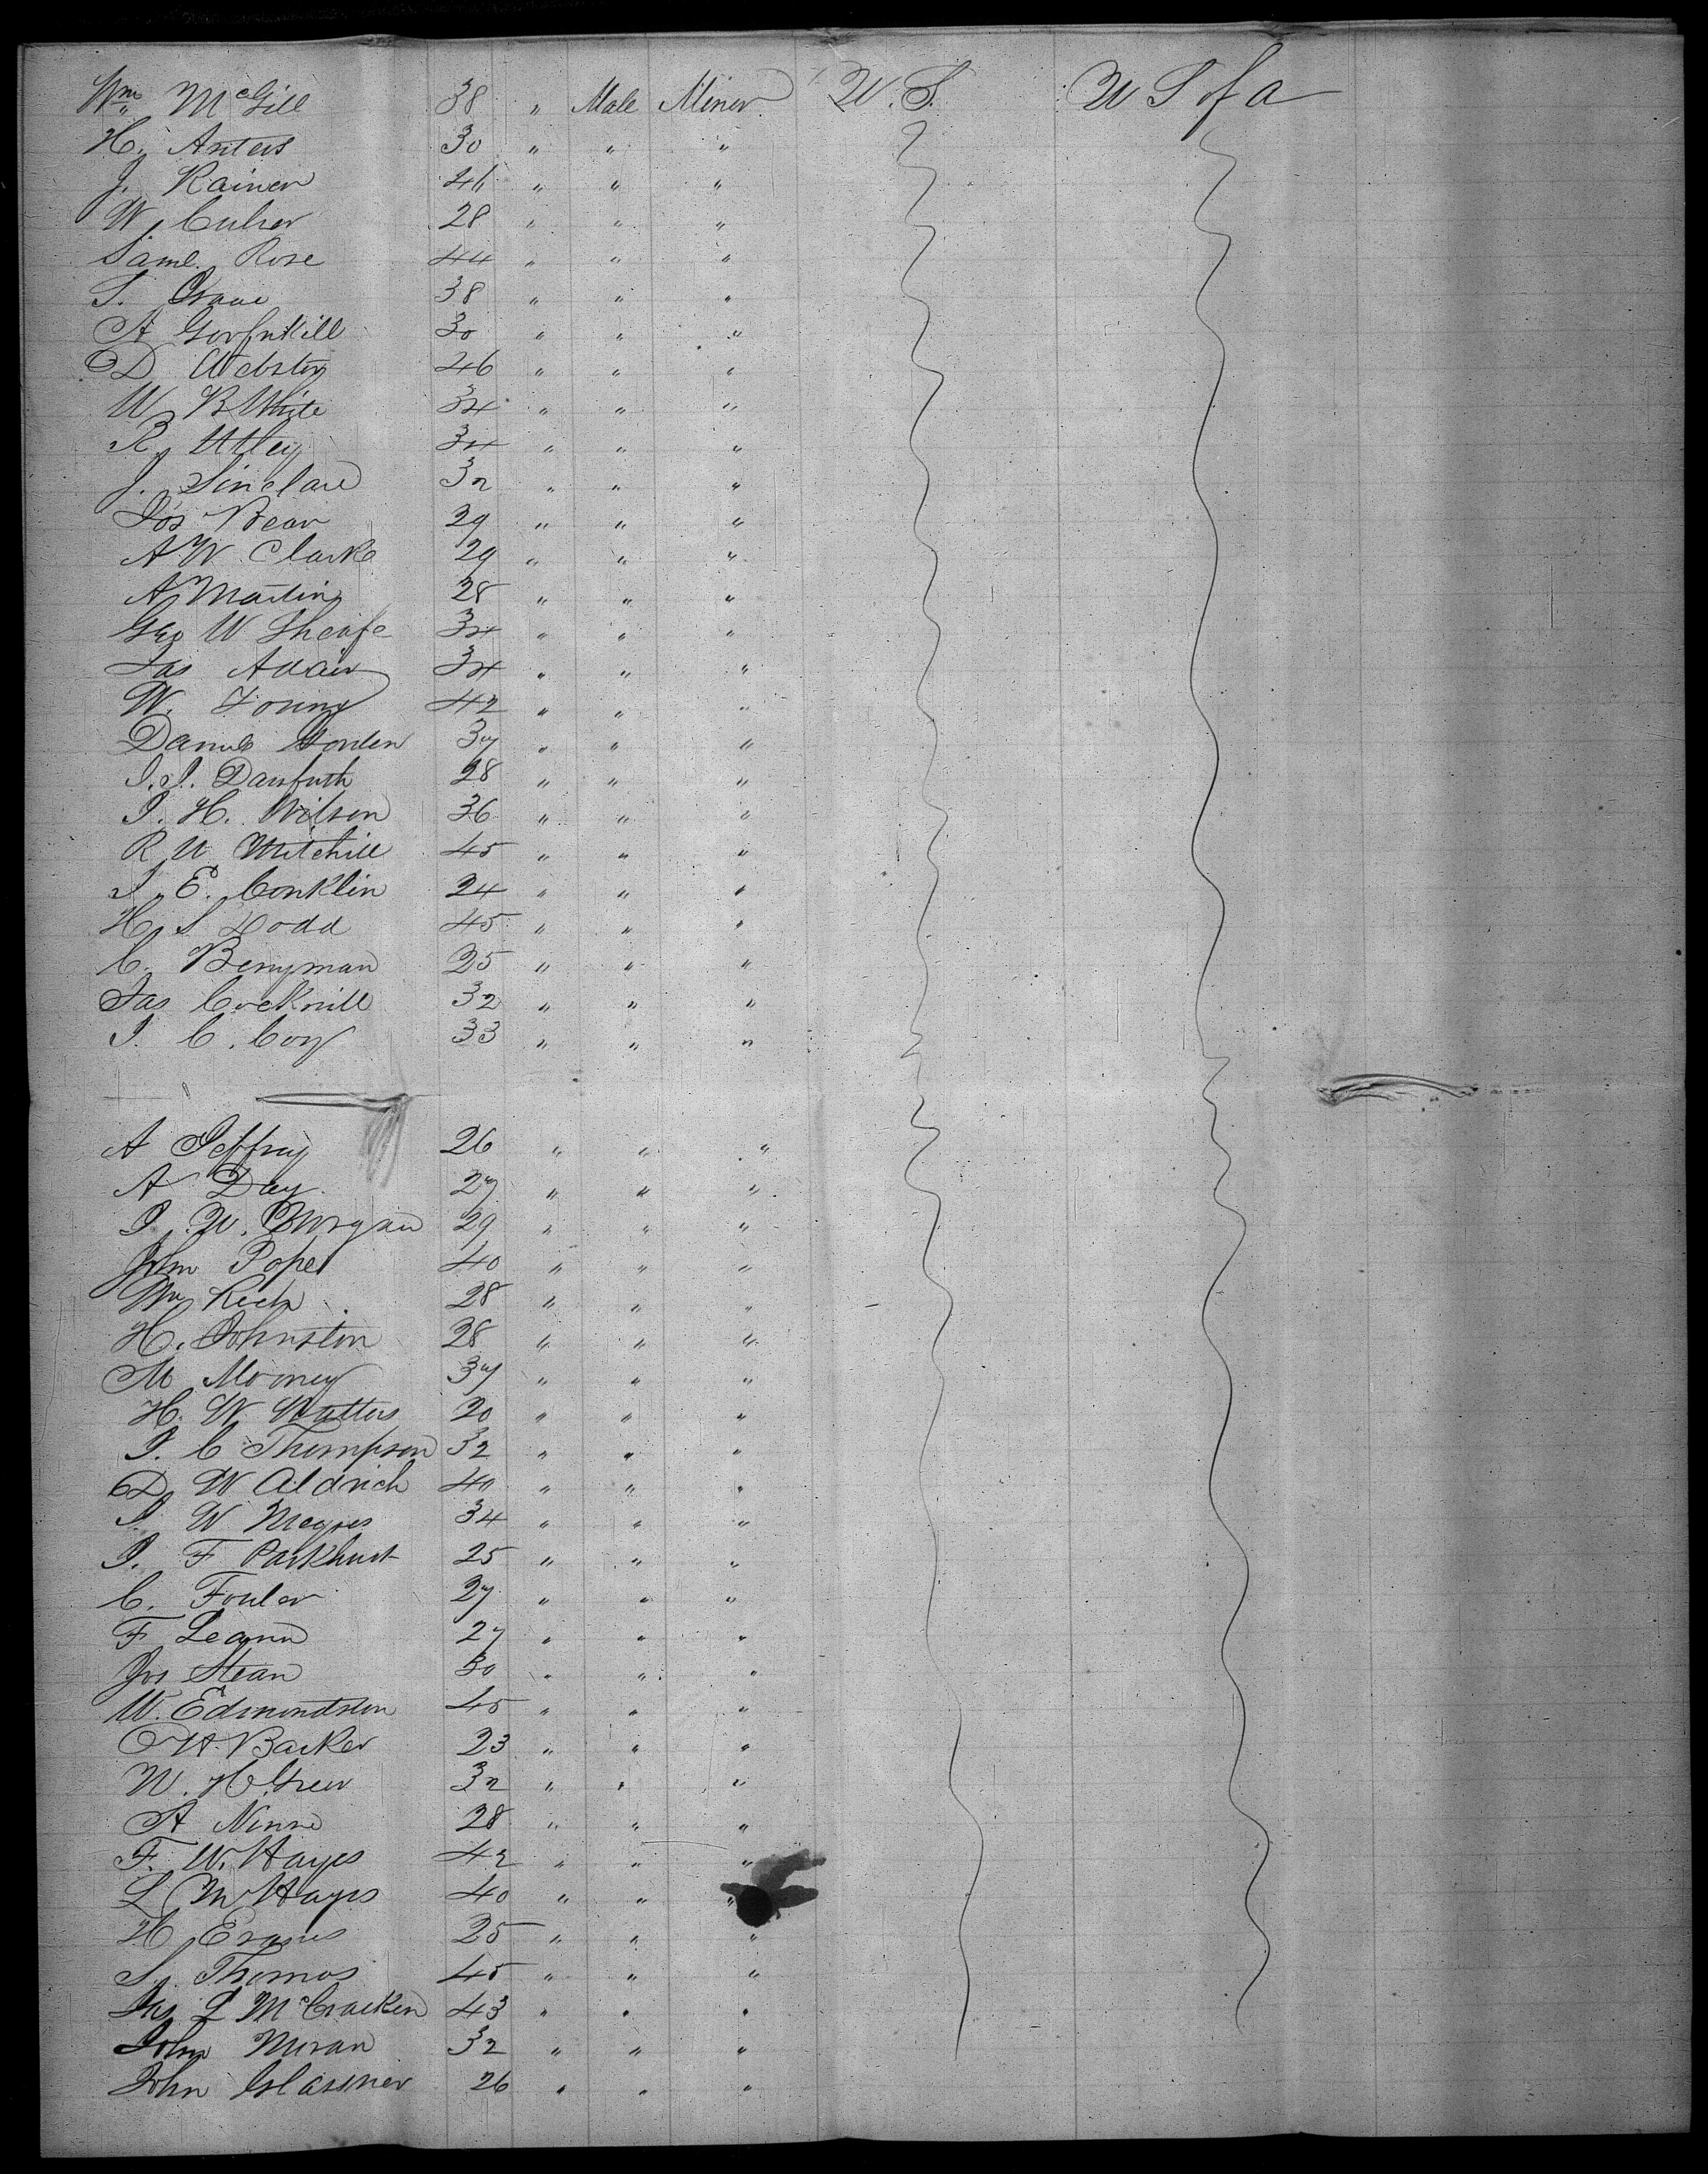 Wm McGill 38 " Male Miner U. S. U S of a
H. Anters 30 " " "
J. Rainer 46 " " "
W. Culver 28 " " "
Saml. Rose 44 " " "
S. 38 " " "
A 30 " " "
D Webster 46 " " "
W B White 34 " " "
R. Utley 34 " " "
J. Sinclare 32 " " "
Jos Bear 29 " " "
A W Clarke 29 " " "
A Martin 28 " " "
Geo W Sheafe 34 " " "
Jas Adair 34 " " "
W. Young 42 " " "
Daniel 37 " " "
J. J. Danforth 28 " " "
J. H. Wilson 36 " " "
R W Mitchill 45 " " "
J. E. Conklin 24 " " "
H. S Dodd 45 " " "
C. Berryman 25 " " "
Jas Cocknill 32 " " "
J. C. Coy 33 " " "
A Jeffray 26 " " "
A Day 27 " " "
J. W. Morgan 29 " " "
John Pope 40 " " "
Wm Rich 28 " " "
H. Johnston 28 " " "
M Mooney 37 " " "
H. W Watters 20 " " "
J. C Thompson 32 " " "
D W Aldrich 40 " " "
J. W 34 " " "
J. F Parkhurst 25 " " "
C. Fowler 27 " " "
F 27 " " "
Jos Stean 30 " " "
W. Edmondston 45 " " "
O H Barker 23 " " "
W. H. Grew 32 " " "
A Ninne 28 " " "
F. W. Hayes 42 " " "
L M Hayes 40 " " "
H Evans 25 " " "
S. Thomas 45 " " "
Jas L McCracken 43 " " "
John Moran 32 " " "
John Glassner 26 " " "